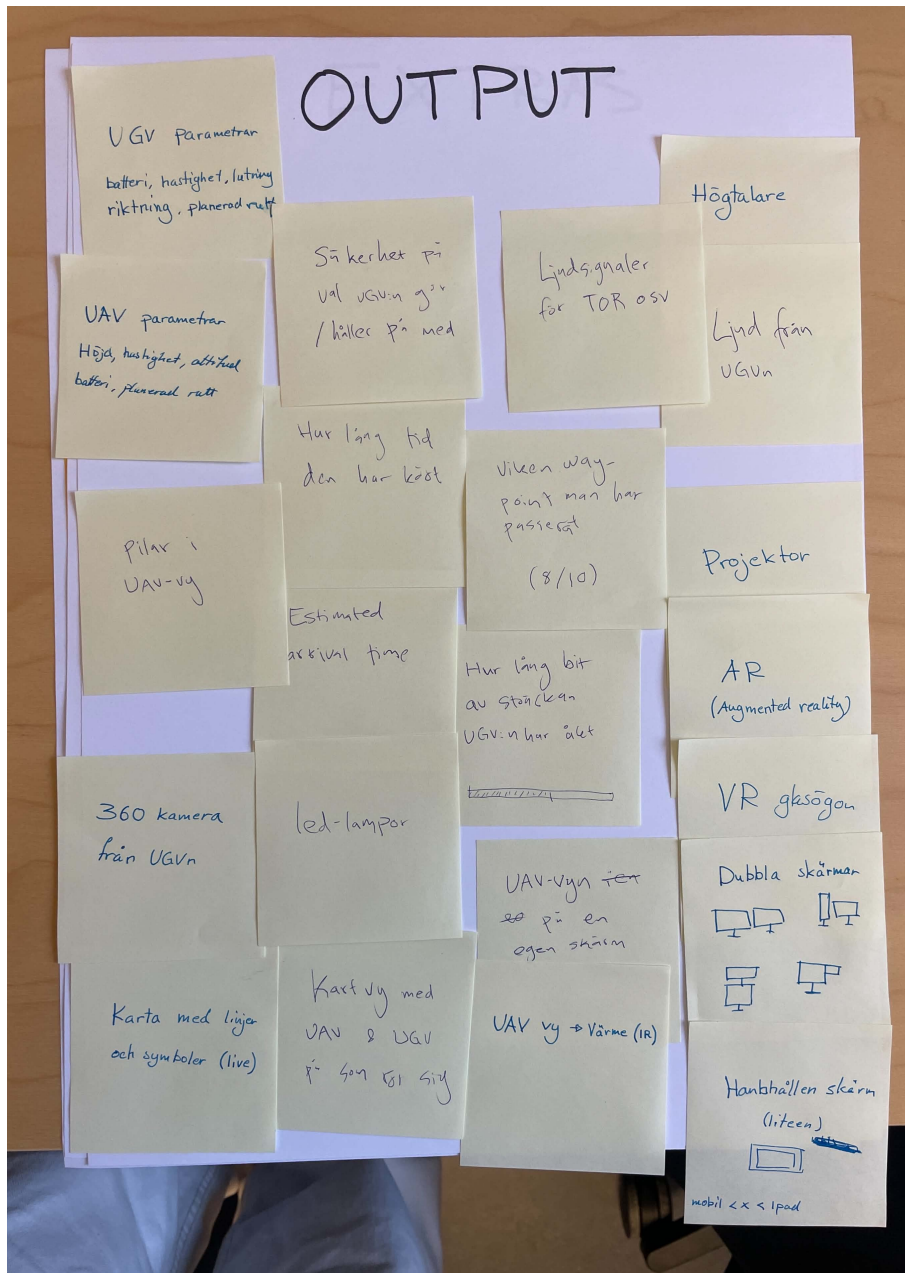 OUTPUT
UGV parametrar
batteri, hastighet, lutning
riktning, planerad rutt
UAV parametrar
Höjd, hastighet, altitud
batteri, planerad rutt
pilar i
UAV-vy
360 kamera
från UGVn
Karta med linjer
och symboler (live)
Säkerhet på
val UGV:n gör
/håller på med
Hur lång tid
den har kört
Estimated
arrival time
led-lampor
Kartvy med
UAV & UGV
på som rör sig
Ljudsignaler
för TOR osv
Vilken way-
point man har
passerat
(8/10)
Hur lång bit
av sträckan
UGV:n har åkt
UAV-vyn
på en
egen skärm
UAV vy → Värme (IR)
Högtalare
Ljud från
UGVn
Projektor
AR
(Augmented reality)
VR glasögon
Dubbla skärmar
Hanbhållen skärm
(liteen)
mobil < x < Ipad